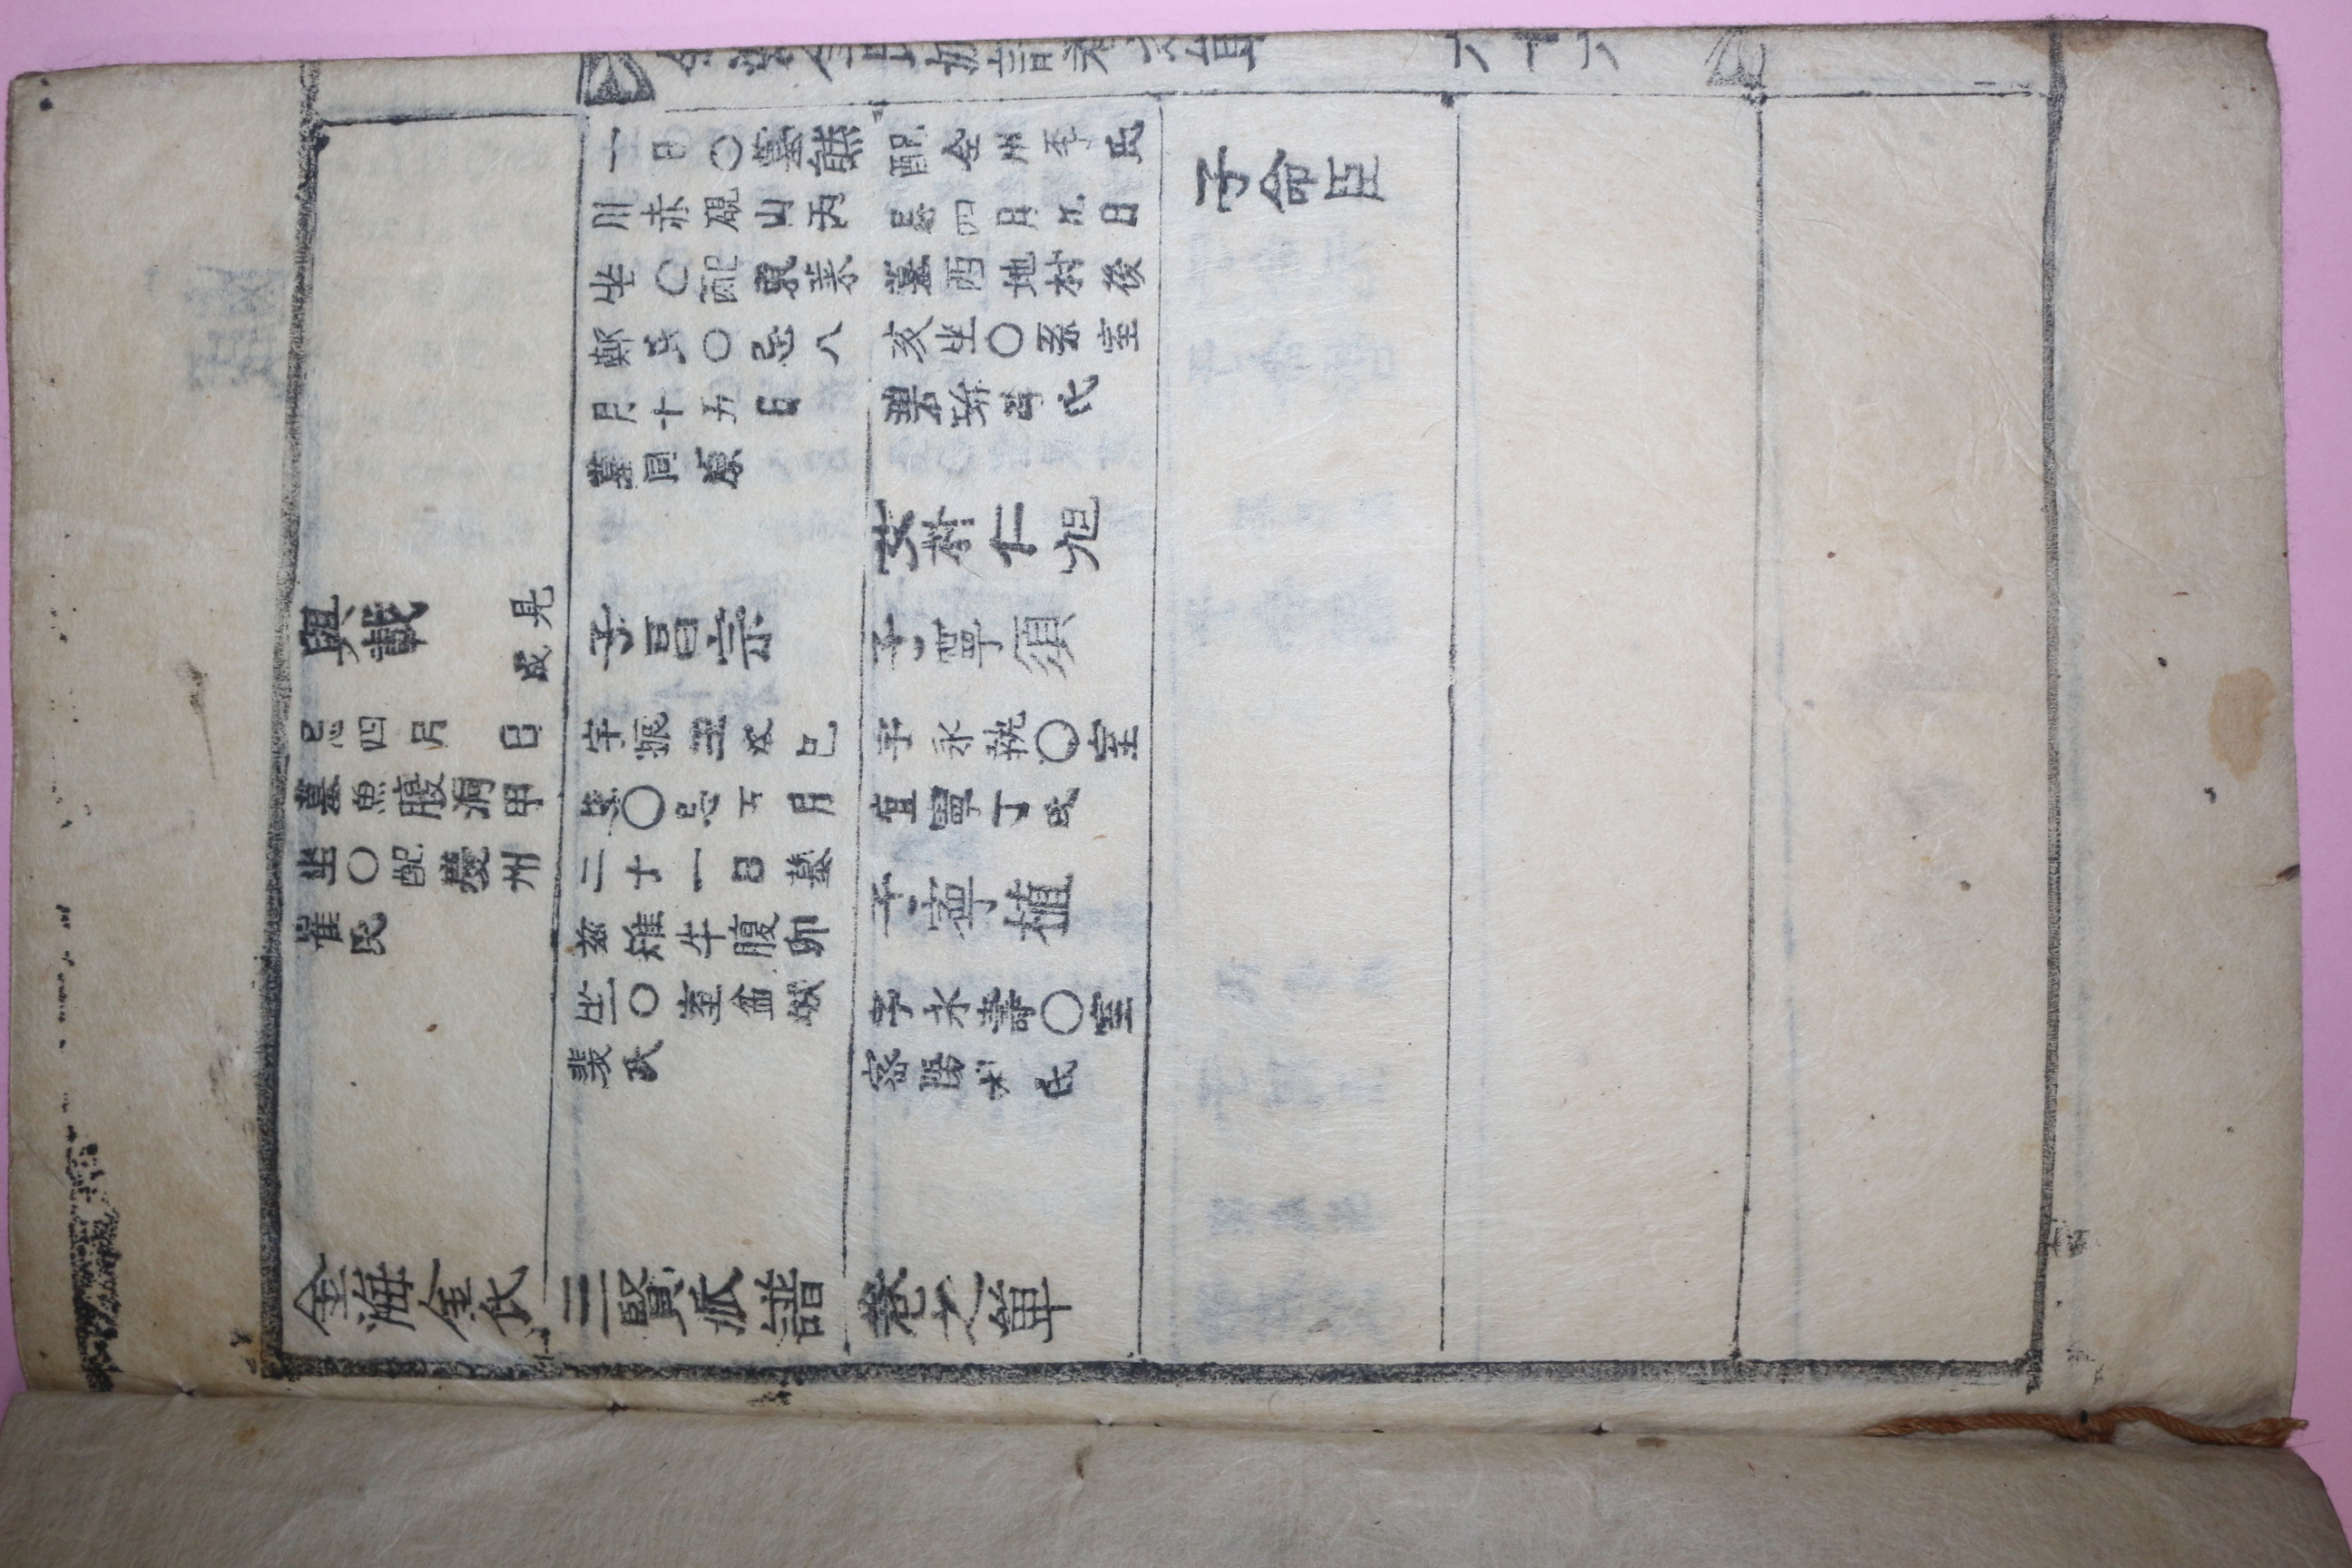 與載
見
成
忌四月 日
墓魚腹洞甲
坐〇配慶州
崔氏
一日〇墓熊
川赤硯山丙
坐〇配東萊
鄭氏〇忌八
月十五日
墓同原
子昌宗
字振玉
生〇忌 月
二十一日墓
玆雉牛腹卯
坐〇室盆城
裴氏
配全州李氏
忌四月 日
墓西地村後
亥坐〇系室
碧珎 氏
女朴仁旭
子寧須
字永執〇室
宜寧丁氏
子寧植
字永壽〇室
密陽朴氏
子命臣
金海金氏三賢派譜卷之單
六十六